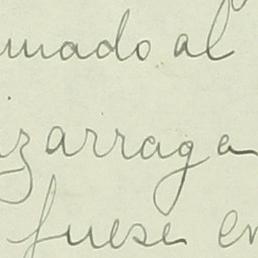 mado al
izarraga
fuese en